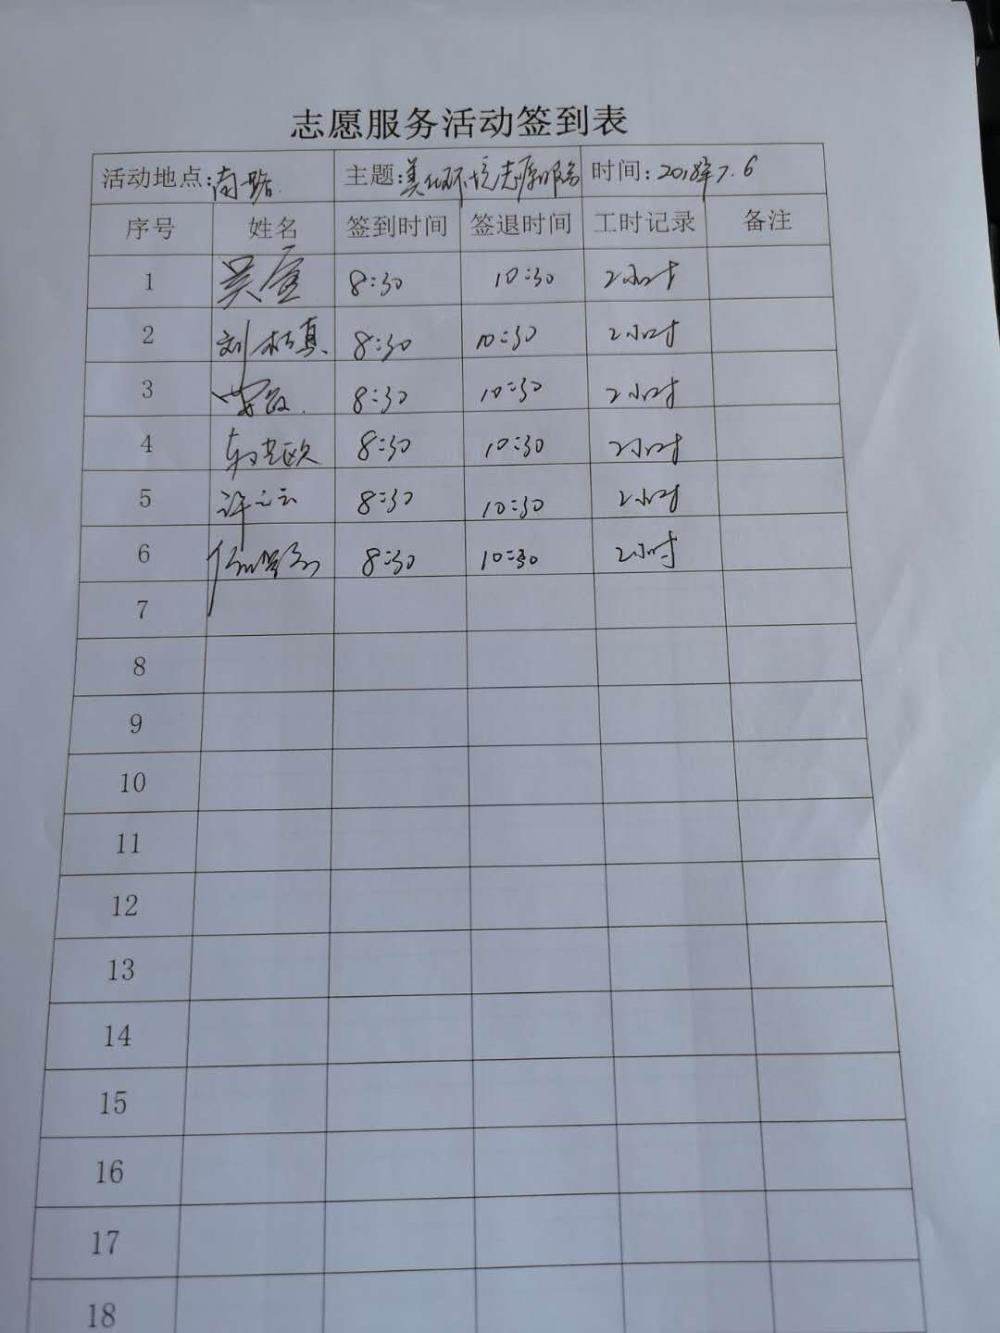 志愿服务活动签到表
活动地点:南一路 主题:美化环境志愿服务 时间:2018年7.6
序号 姓名 签到时间 签退时间 工时记录 备注
1 吴 8:30 10:30 2小时
2 刘 真 8:30 10:30 2小时
3 8:30 10:30 2小时
4 8:30 10:30 2小时
5 许 云 8:30 10:30 2小时
6 8:30 10:30 2小时
7
8
9
10
11
12
13
14
15
16
17
18